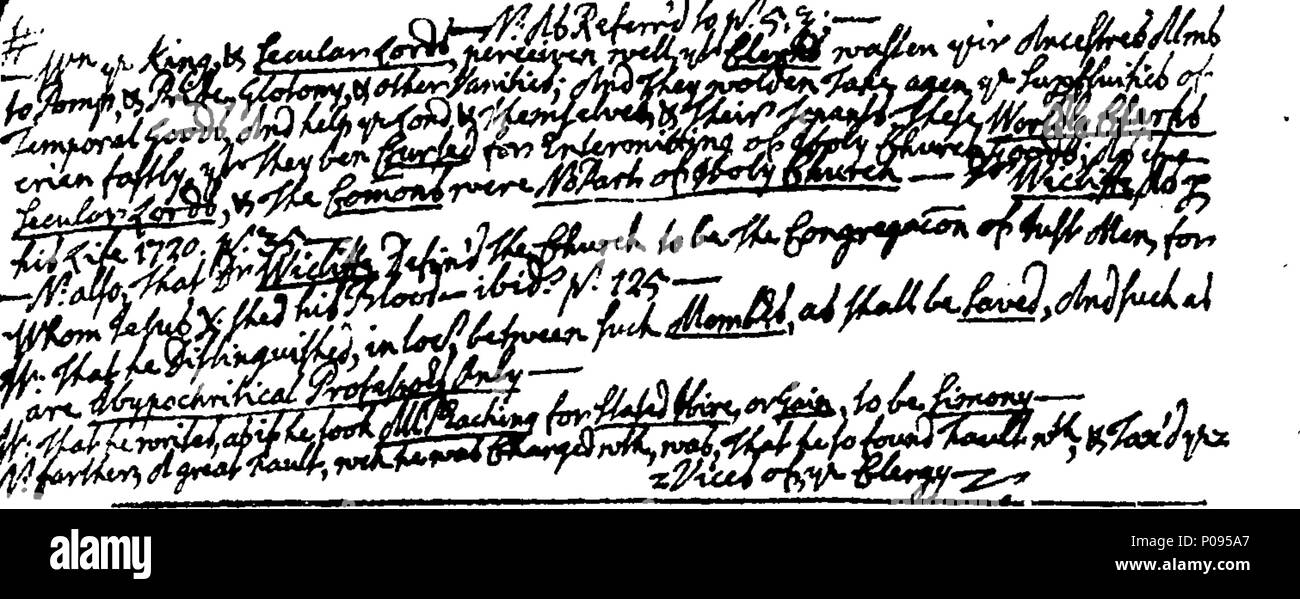 — N: As Referr'd to p. 5. —
# Wn ye King, & Secular Lords, perceiven well, yt Clerks wasten yir Ancestres Alms
to Pomp, & Pride, Glotony, & other Vanities; And They wolden Take agen ye Supfluities of
Temporal Goods, And help ye Lond & Themselves, & Their Tenants These Worldly Clerks
crien fastly, yt They ben Cursed for Entermitting of Holy Church Goods; As
Secular Lords, & The Comons were No Part of Holy Church — Wicliffe
his Life 1720. p.
— N: also, That Dr Wicliffe Defin'd The Church to be The Congregacion of Just Men, for
Whom Jesus X: shed his Blood — ibid: p. 125 —
N: That he Distinguished, in loc: between such Membrs, as shall be Saved, And such as
are Hypochritical Professors Only —
N: That he writes, as if he took All Preaching for Stated Hire, or Gain, to be Simony —
N: farther, A great Fault, wch he was Charged wth, was, That he so found Fault wth, & Tax'd ye
Vices of ye Clergy —
alamy
Image ID: P095A7
www.alamy.com